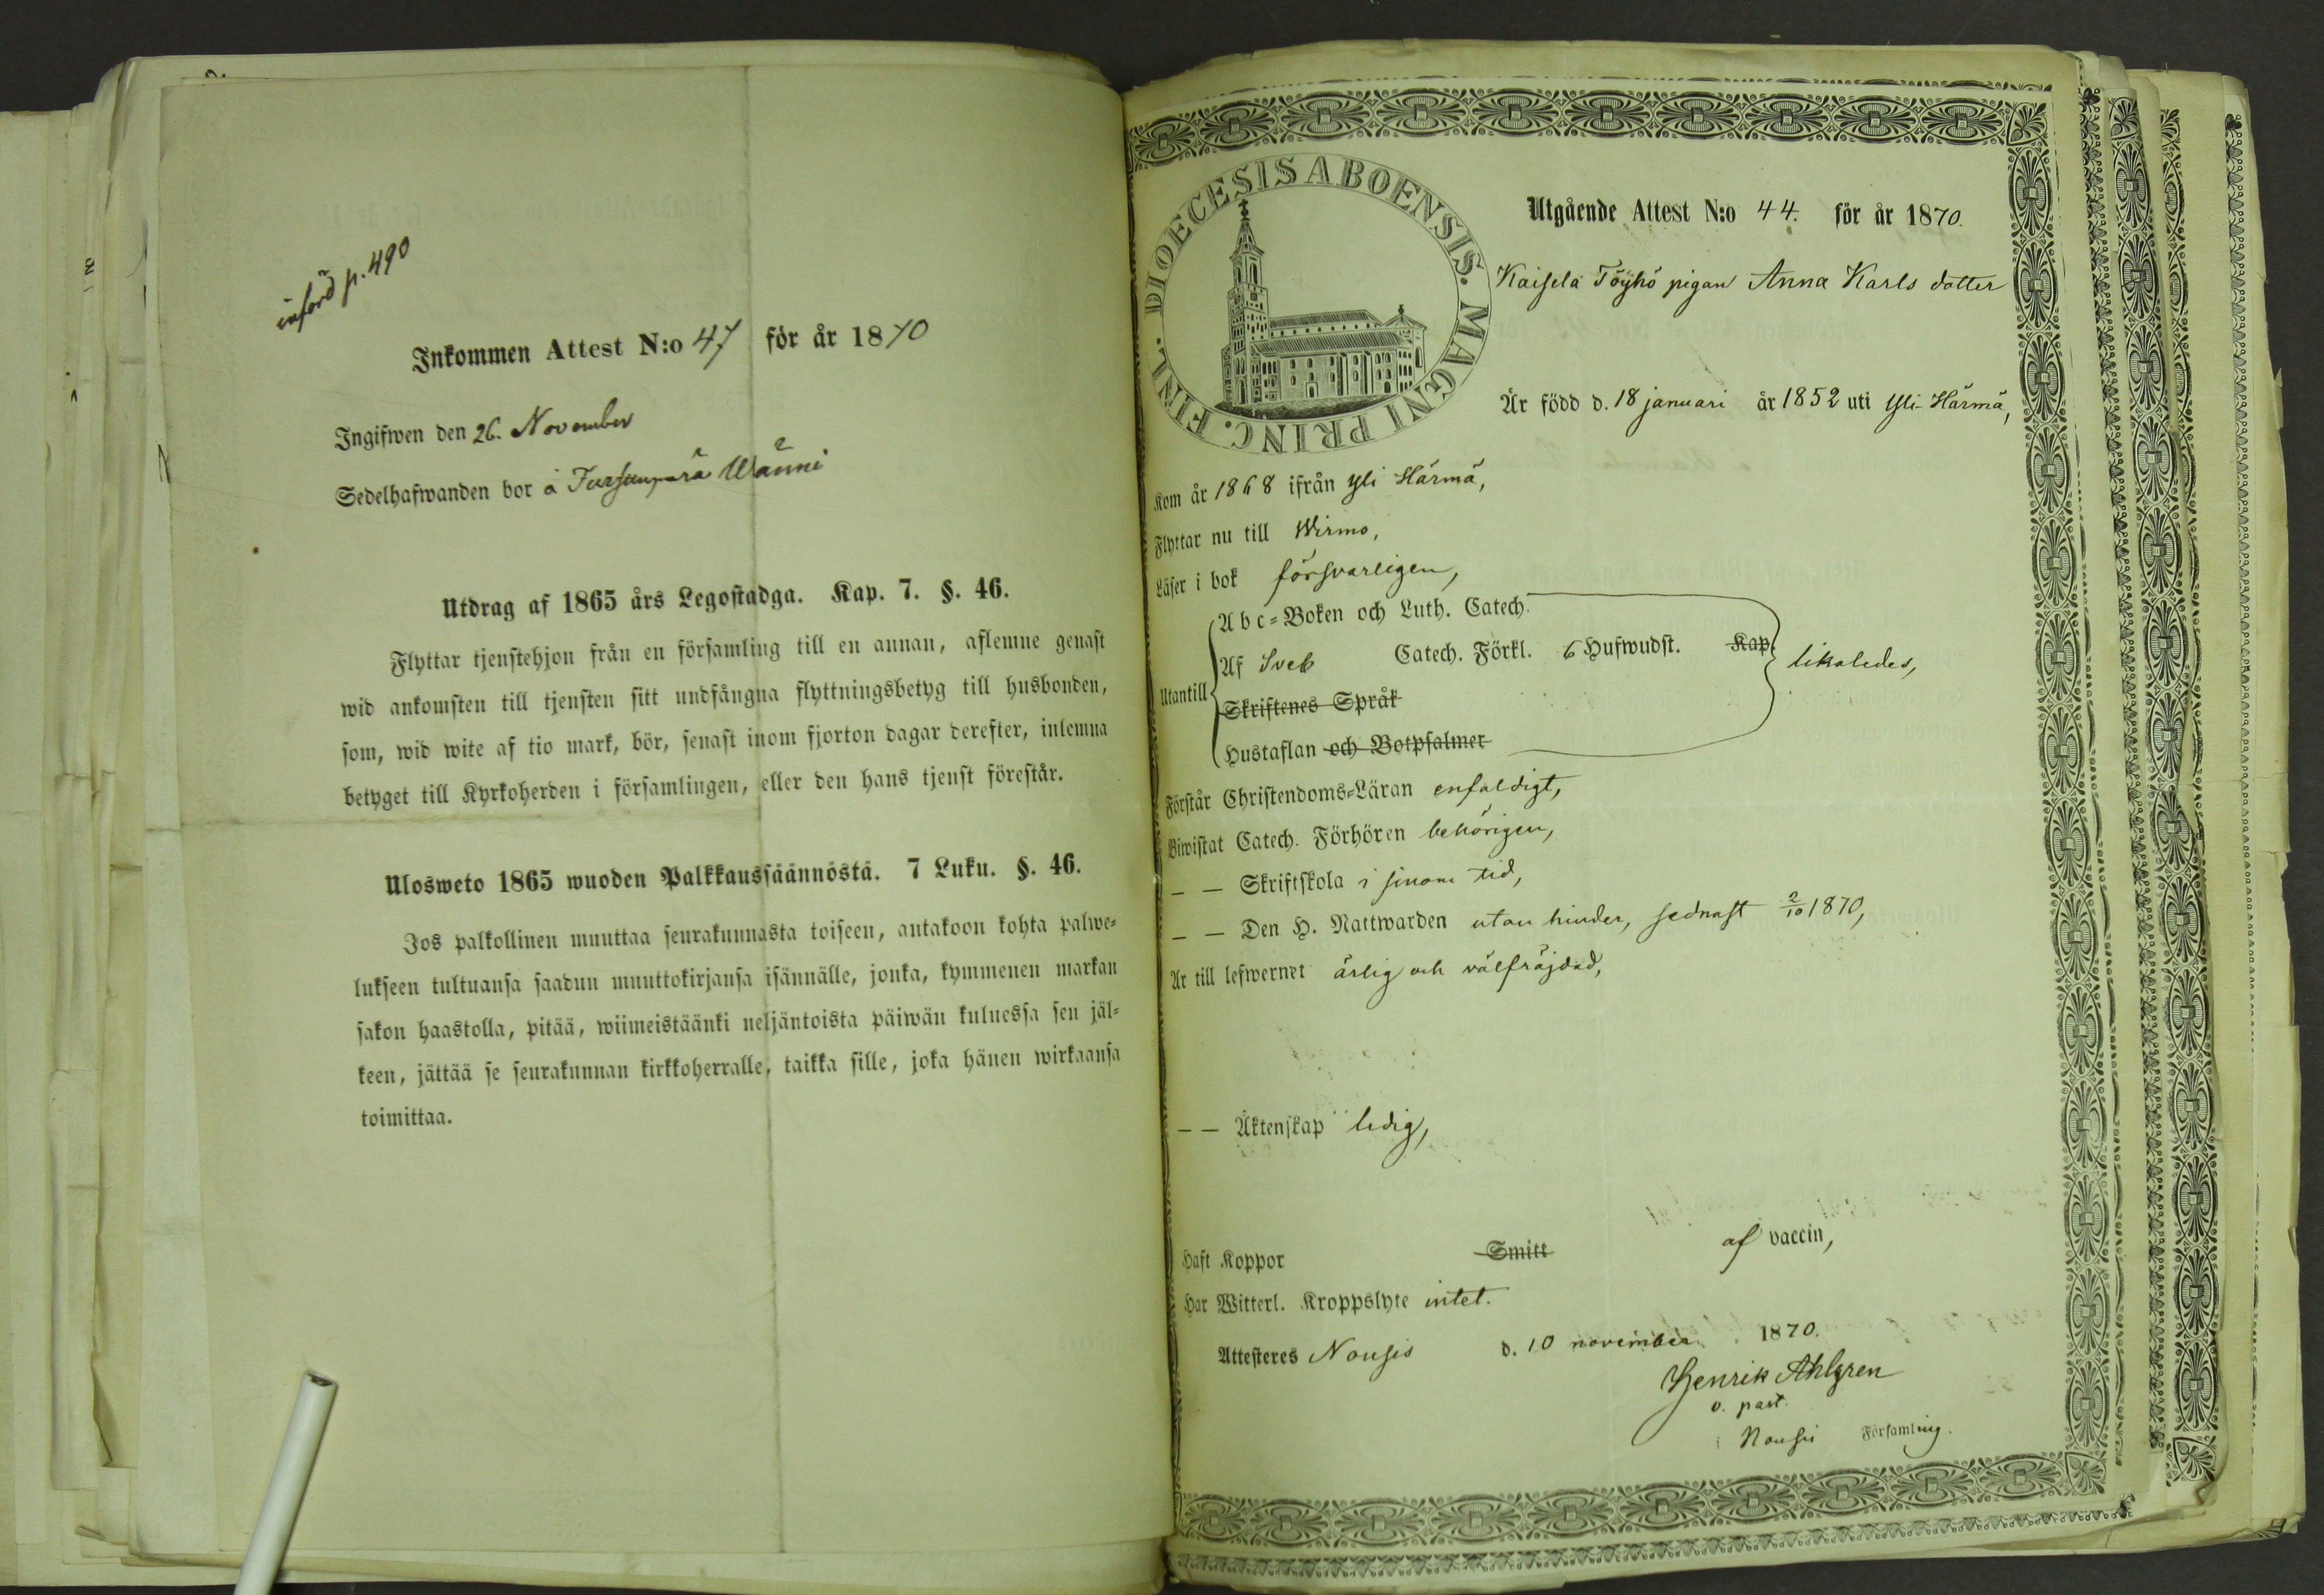 införd p. 490
Inkommen Attest N:o 47 för år 1870
Ingifwen den 26. November
Sedelhafwanden bor å Tursunperä Wänni
Utdrag af 1865 års Legostadga. Kap. 7. §. 46.
Flyttar tjenstehjon från en församling till en annan, aflemne genast
wid ankomsten till tjensten sitt undfångna flyttningsbetyg till husbonden,
som, wid wite af tio mark, bör, senast inom fjorton dagar derefter, inlemna
betyget till Kyrkoherden i församlingen, eller den hans tjenst förestår.
Ulosweto 1865 wuoden Palkkaussäännöstä. 7 Luku. §. 46.
Jos palkollinen muuttaa seurakunnasta toiseen, antakoon kohta palwe-
lukseen tultuansa saadun muuttokirjansa isännälle, jonka, kymmenen markan
sakon haastolla, pitää, wiimeistäänki neljäntoista päiwän kuluessa sen jäl-
keen, jättää se seurakunnan kirkkoherralle, taikka sille, joka hänen wirkaansa
toimittaa.
DIOECESIS ABOENSIS. MAGNI PRINC. FINL.
Utgående Attest N:o 44. för år 1870.
Kaisela Töyhö pigan Anna Karls dotter
Är född d. 18 januari år 1852 uti Yli-Härmä,
Kom år 1868 ifrån Yli Härmä,
Flyttar nu till Wirmo,
Läser i bok försvarligen,
Utantill
Abc-Boken och Luth. Catech.
Af Sveb Catech. Förkl. 6 Hufwudst. Kap. likaledes,
Skriftenes Språk
Hustaflan och Botpsalmer
Förstår Christendoms-Läran enfaldigt,
Biwistat Catech. Förhören behörigen,
— — Skriftskola i sinom tid,
— — Den H. Nattwarden utan hinder, sednast 2/10 1870,
Är till lefwernet ärlig och välfräjdad,
— — Äktenskap ledig,
Haft Koppor Smitt af vaccin,
Har Witterl. Kroppslyte intet.
Attesteres Nousis d. 10 november 1870.
Henrik Ahlgren
v. past.
i Nousis Församling.